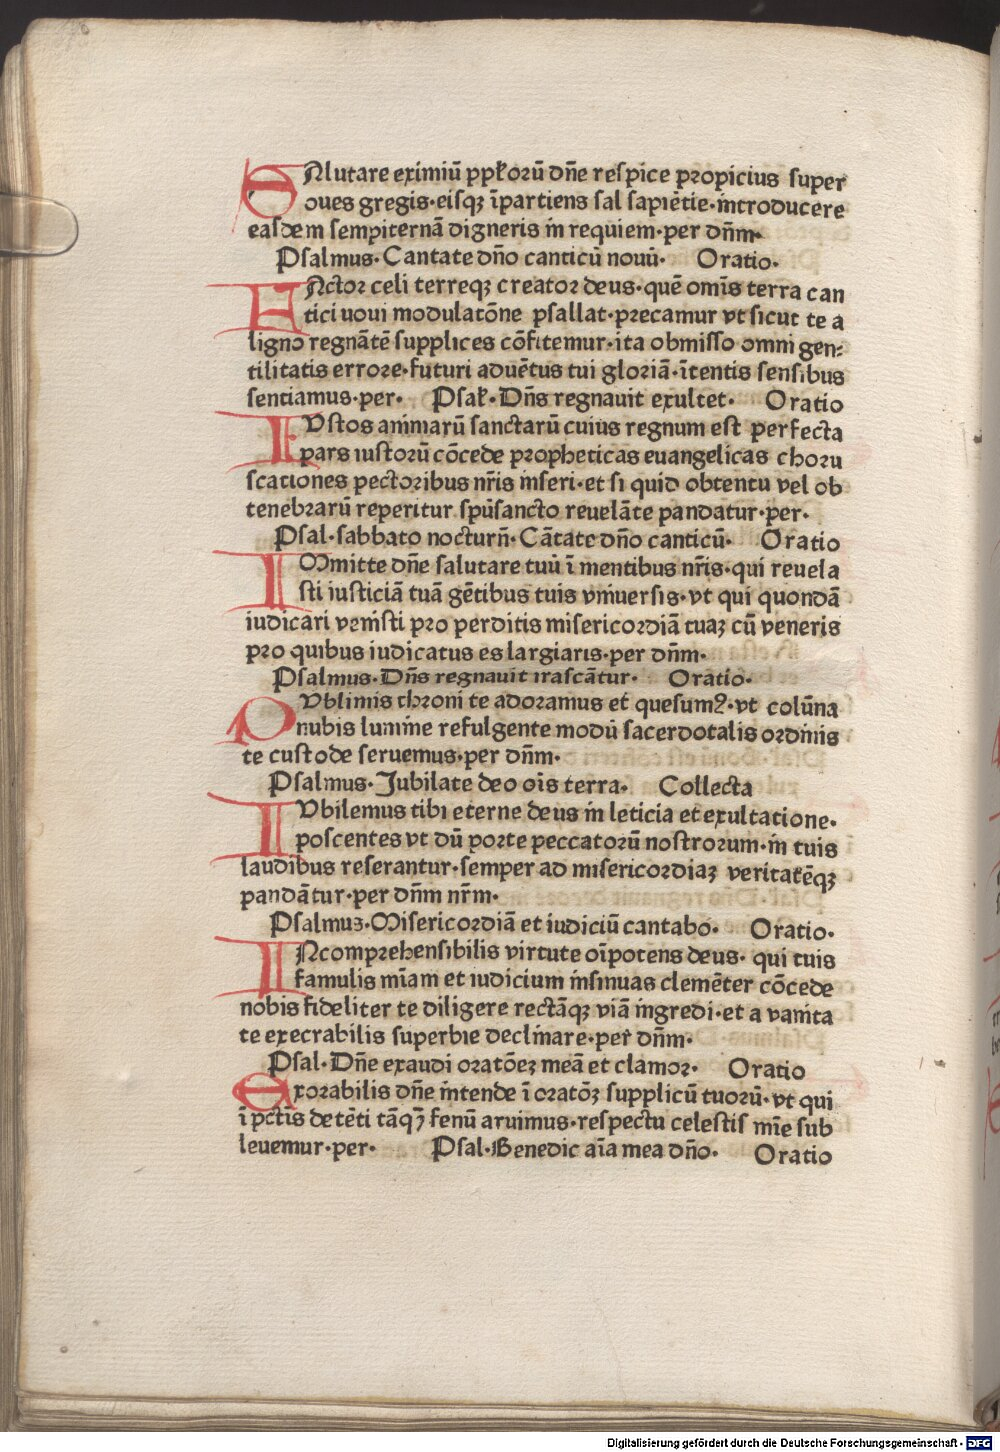 SAlutare eximiū ppl̄orū dn̄e respice propicius super
oues gregis·eisqꝫ īpartiens sal sapiētie·introducere
easdem sempiternā digneris in requiem·per dn̄m·
Psalmus·Cantate dn̄o canticū nouū· Oratio·
FActor celi terreqꝫ creator deus·quē om̄is terra can
tici uoui modulatōne psallat·precamur vt sicut te a
ligno regnātē supplices cōfitemur·ita obmisso omni gen:
tilitatis errore·futuri aduētus tui gloriā·ītentis sensibus
sentiamus·per· Psal̄·Dn̄s regnauit exultet· Oratio
IVstos animarū sanctarū cuius regnum est perfecta
pars iustorū cōcede propheticas euangelicas choru
scationes pectoribus nr̄is inseri·et si quid obtentu vel ob
tenebrarū reperitur spūsancto reuelāte pandatur·per·
Psal·sabbato nocturn̄·Cātate dn̄o canticū· Oratio
IMmitte dn̄e salutare tuū ī mentibus nr̄is·qui reuela
sti iusticiā tuā gētibus tuis vniuersis·vt qui quondā
iudicari venisti pro perditis misericordiā tuaꝫ cū veneris
pro quibus iudicatus es largiaris·per dn̄m·
Psalmus·Dn̄s regnauit irascātur· Oratio·
OVblimis throni te adoramus et quesumꝰ·vt colūna
nubis lumine refulgente modū sacerdotalis ordinis
te custode seruemus·per dn̄m·
Psalmus·Jubilate deo oīs terra· Collecta
IVbilemus tibi eterne deus in leticia et exultatione·
poscentes vt dū porte peccatorū nostrorum·in tuis
laudibus reserantur·semper ad misericordiaꝫ veritatēqꝫ
pandātur·per dn̄m nr̄m·
Psalmuꝫ·Misericordiā et iudiciū cantabo· Oratio·
INcomprehensibilis virtute oīpotens deus· qui tuis
famulis mīam et iudicium insinuas clemēter cōcede
nobis fideliter te diligere rectāqꝫ viā ingredi·et a vanita
te execrabilis superbie declinare·per dn̄m·
Psal·Dn̄e exaudi oratōeꝫ meā et clamor· Oratio
Exorabilis dn̄e intende ī oratōꝫ supplicū tuorū·vt qui
ī pctīs detēti tāqꝫ fenū aruimus·respectu celestis mīe sub
leuemur·per· Psal·Benedic aīa mea dn̄o· Oratio
Digitalisierung gefördert durch die Deutsche Forschungsgemeinschaft - DFG